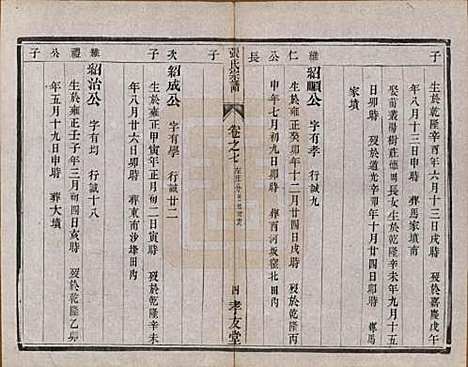 子
生於乾隆辛酉年六月十三日戌時 歿於嘉慶戊午
年八月十三日申時 葬馬家墳南
娶前叢楊樹莊德男長女生於乾隆辛未年九月十五
日卯時 歿於道光辛卯年十月廿四日卯時 葬馬
家墳
維仁公長
紹順公 字有孝 行誠九
生於雍正癸卯年十二月廿八日戌時 歿於乾隆丙
申年七月初九日卯時 葬西河坂窪北田內
張氏宗譜
卷之七
四
孝友堂
次子
紹成公 字有學 行誠廿二
生於雍正甲寅年正月初二日寅時 歿於乾隆辛未
年八月廿六日卯時 葬東南沙埂田內
維禮公子
紹治公 字有均 行誠十八
生於雍正壬子年三月初四日亥時 歿於乾隆乙卯
年五月十九日申時 葬大墳